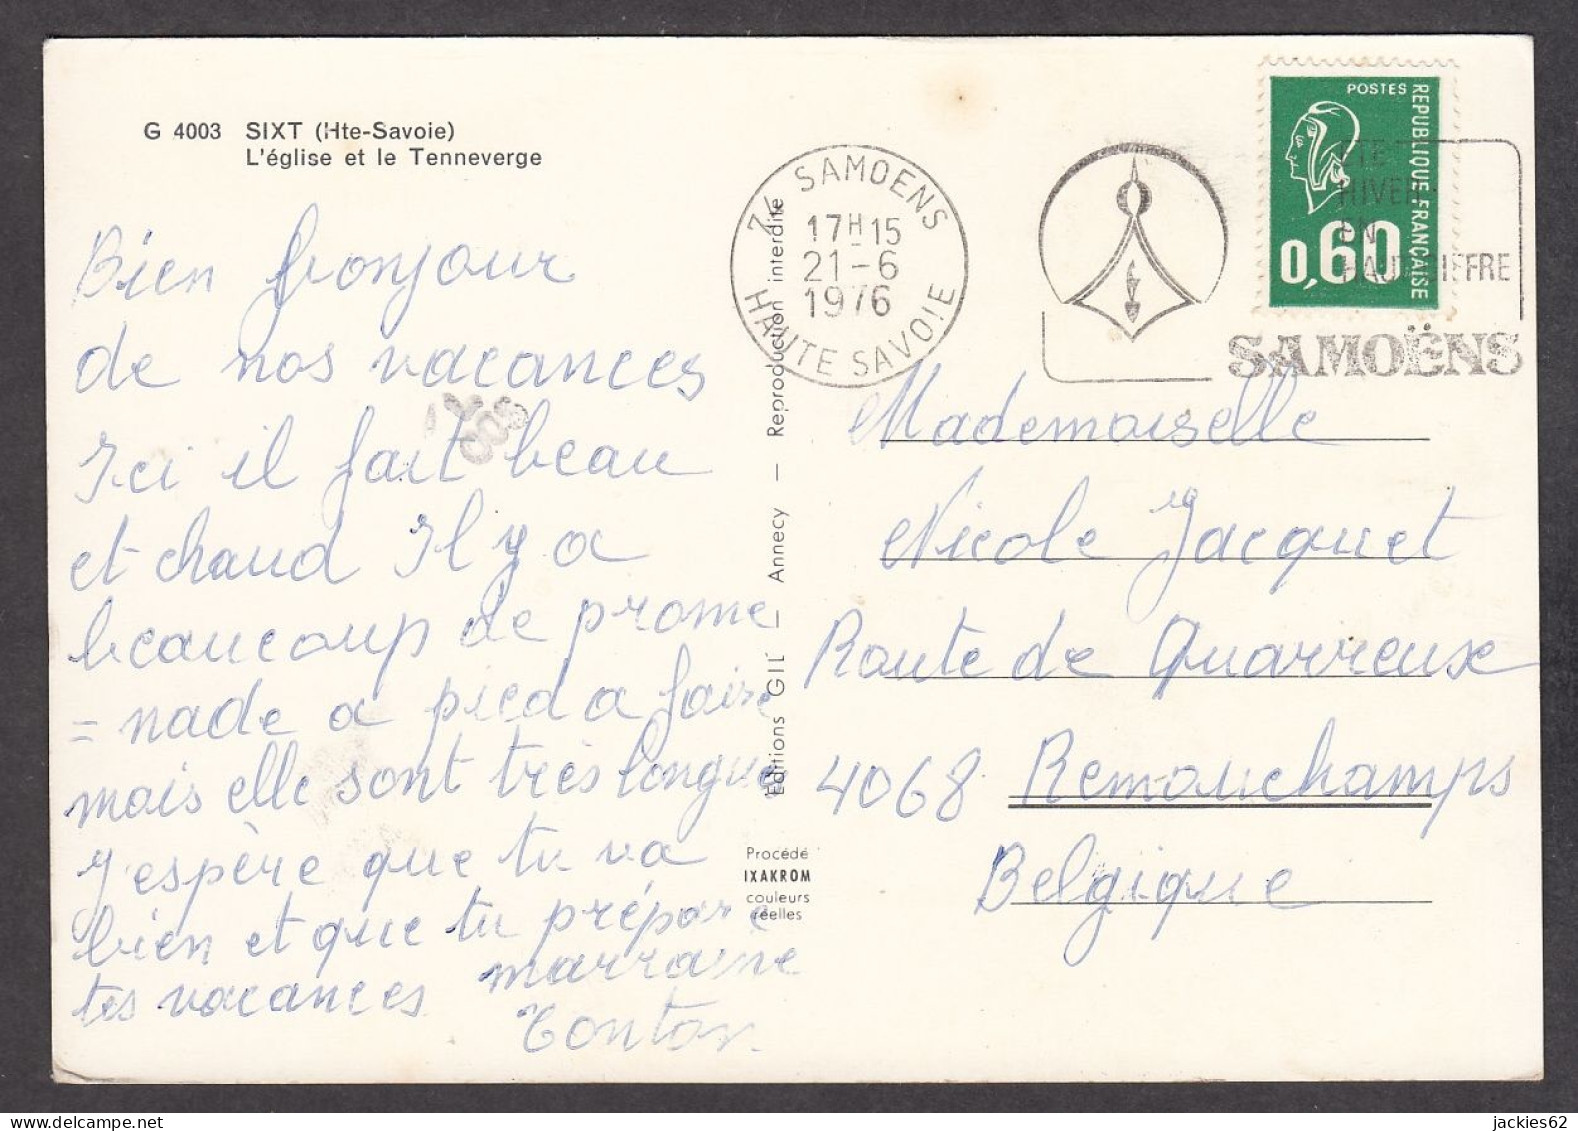 G 4003 SIXT (Hte-Savoie)
L'église et le Tenneverge
Bien bonjour
de nos vacances
Ici il fait beau
et chaud Il y a
beaucoup de prome
= nade a pied a faire
mais elle sont très longue
J'espère que tu va
bien et que tu prépare
tes vacances marraine
Tonton
74 SAMOENS
17H15
21-6
1976
HAUTE SAVOIE
ETE
HIVER
EN
HAUT GIFFRE
SAMOËNS
POSTES
REPUBLIQUE FRANÇAISE
0,60
Editions GIL - Annecy - Reproduction interdite
Procédé
IXAKROM
couleurs
réelles
Mademoiselle
Nicole Jacquet
Route de Quarreux
4068 Remouchamps
Belgique
jackies62